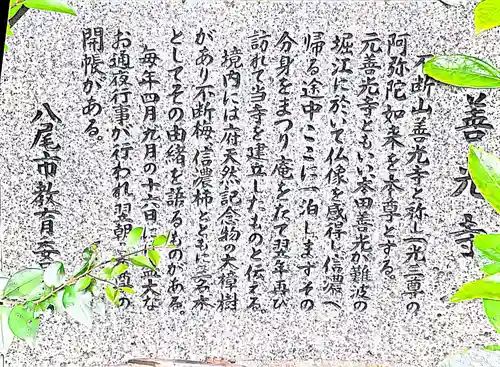 善光寺
不断山善光寺と称し一光三尊の
阿弥陀如来を本尊とする。
元善光寺ともいい本田善光が難波の
堀江に於いて仏像を感得し信濃へ
帰る途中ここに一泊しまずその
分身をまつり庵をたて翌年再び
訪れて当寺を建立したものと伝える。
境内には府天然記念物の大樟樹
があり不断梅、信濃柿とともに三名木
としてその由緒を語るものがある。
毎年四月九月の十六日に盛大な
お通夜行事が行われ翌朝
開帳がある。
八尾市教育委